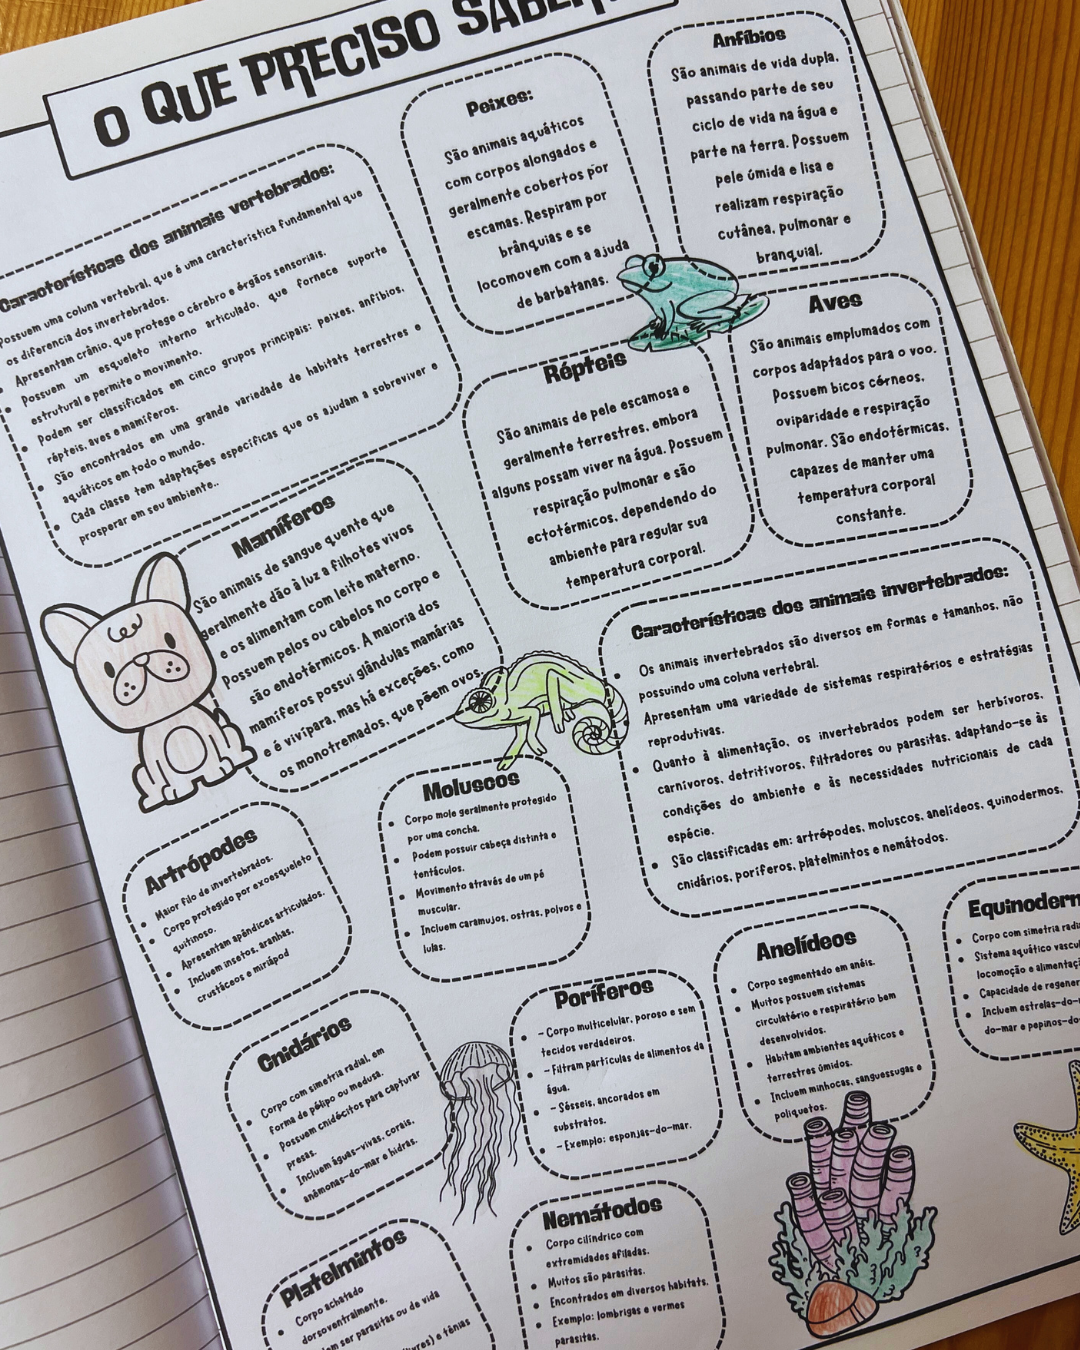 O QUE PRECISO SABER
Características dos animais vertebrados:
Possuem uma coluna vertebral, que é uma característica fundamental que
os diferencia dos invertebrados.
Apresentam crânio, que protege o cérebro e órgãos sensoriais.
Possuem um esqueleto interno articulado, que fornece suporte
estrutural e permite o movimento.
Podem ser classificados em cinco grupos principais: peixes, anfíbios,
répteis, aves e mamíferos.
São encontrados em uma grande variedade de habitats terrestres e
aquáticos em todo o mundo.
Cada classe tem adaptações específicas que os ajudam a sobreviver e
prosperar em seu ambiente..
Peixes:
São animais aquáticos
com corpos alongados e
geralmente cobertos por
escamas. Respiram por
brânquias e se
locomovem com a ajuda
de barbatanas.
Anfíbios
São animais de vida dupla,
passando parte de seu
ciclo de vida na água e
parte na terra. Possuem
pele úmida e lisa e
realizam respiração
cutânea, pulmonar e
branquial.
Répteis
São animais de pele escamosa e
geralmente terrestres, embora
alguns possam viver na água. Possuem
respiração pulmonar e são
ectotérmicos, dependendo do
ambiente para regular sua
temperatura corporal.
Aves
São animais emplumados com
corpos adaptados para o voo.
Possuem bicos córneos,
oviparidade e respiração
pulmonar. São endotérmicas,
capazes de manter uma
temperatura corporal
constante.
Mamíferos
São animais de sangue quente que
geralmente dão à luz a filhotes vivos
e os alimentam com leite materno.
Possuem pelos ou cabelos no corpo e
são endotérmicos. A maioria dos
mamíferos possui glândulas mamárias
e é vivípara, mas há exceções, como
os monotremados, que põem ovos.
Características dos animais invertebrados:
Os animais invertebrados são diversos em formas e tamanhos, não
possuindo uma coluna vertebral.
Apresentam uma variedade de sistemas respiratórios e estratégias
reprodutivas.
Quanto à alimentação, os invertebrados podem ser herbívoros,
carnívoros, detritívoros, filtradores ou parasitas, adaptando-se às
condições do ambiente e às necessidades nutricionais de cada
espécie.
São classificadas em: artrópodes, moluscos, anelídeos, quinodermos,
cnidários, poríferos, platelmintos e nemátodos.
Artrópodes
Maior filo de invertebrados.
Corpo protegido por exoesqueleto
quitinoso.
Apresentam apêndices articulados.
Incluem insetos, aranhas,
crustáceos e miriápod
Moluscos
Corpo mole geralmente protegido
por uma concha.
Podem possuir cabeça distinta e
tentáculos.
Movimento através de um pé
muscular.
Incluem caramujos, ostras, polvos e
lulas.
Anelídeos
Corpo segmentado em anéis.
Muitos possuem sistemas
circulatório e respiratório bem
desenvolvidos.
Habitam ambientes aquáticos e
terrestres úmidos.
Incluem minhocas, sanguessugas e
poliquetos.
Equinoderm
Corpo com simetria radi
Sistema aquático vascu
locomoção e alimentaçã
Capacidade de regener
Incluem estrelas-do-m
do-mar e pepinos-do-
Cnidários
Corpo com simetria radial, em
forma de pólipo ou medusa.
Possuem cnidócitos para capturar
presas.
Incluem águas-vivas, corais,
anêmonas-do-mar e hidras.
Poríferos
- Corpo multicelular, poroso e sem
tecidos verdadeiros.
- Filtram partículas de alimentos da
água.
- Sésseis, ancorados em
substratos.
- Exemplo: esponjas-do-mar.
Platelmintos
Corpo achatado
dorsoventralmente.
em ser parasitas ou de vida
ivres) e tênias
Nemátodos
Corpo cilíndrico com
extremidades afiladas.
Muitos são parasitas.
Encontrados em diversos habitats.
Exemplo: lombrigas e vermes
parasitas.